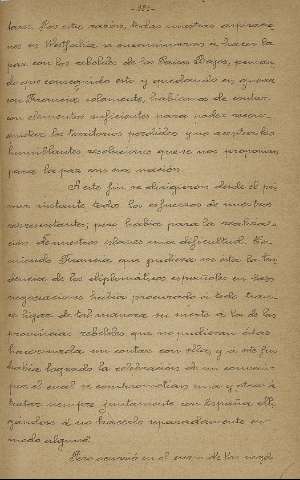 tare. Por esta razón, todas nuestras aspiracio-
nes en Westfalia se encaminaron a hacer la
paz con los rebeldes de los Paises Bajos, pensan-
do que conseguido esto y quedando en guerra
con Francia solamente, habíamos de contar
con elementos suficientes para poder recon-
quistar los territorios perdidos y no aceptar las
humillantes resoluciones que se nos proponían
para la paz con esa nación.
A este fin se dirigieron desde el pri-
mer instante todos los esfuerzos de nuestros
representantes; pero había para la realiza-
ción de nuestros planes una dificultad. Co-
nociendo Francia que pudiera ser esta la ten-
dencia de los diplomáticos españoles en las
negociaciones había procurado a todo tran-
ce ligar de tal manera su suerte a la de las
provincias rebeldes que no pudieran éstas
hacer nada sin contar con ella, y a este fin
había logrado la celebración de un convenio
por el cual se comprometían una y otras a
tratar siempre juntamente con España obli-
gandose a no hacerlo separadamente en
modo alguno.
Pero ocurrió en el curso de las nego-